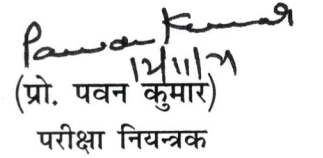 Pawan Kumar
(प्रो. पवन कुमार)
परीक्षा नियन्त्रक